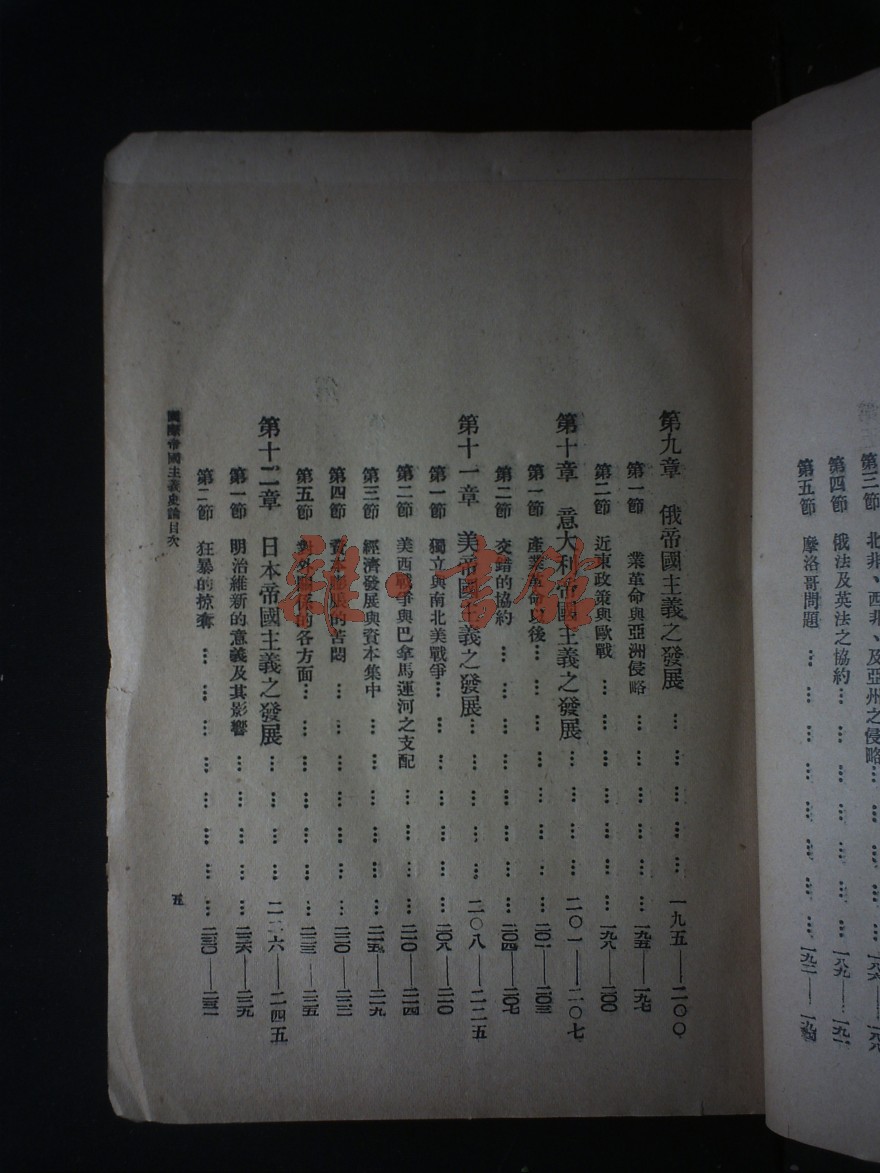 第三節 北非、西非、及亞州之侵略… … … … … …一八六—一八八
第四節 俄法及英法之協約… … … … … … …一八九—一九一
第五節 摩洛哥問題 … … … … … … … …一九二—一九四
第九章 俄帝國主義之發展 … … … … …一九五—二〇〇
第一節 業革命與亞洲侵略 … … … … … …一九五—一九七
第二節 近東政策與歐戰 … … … … … … …一九八—二〇〇
第十章 意大利帝國主義之發展 … … … …二〇一—二〇七
第一節 產業革命以後… … … … … … … …二〇一—二〇三
第二節 交錯的協約 … … … … … … … …二〇四—二〇七
第十一章 美帝國主義之發展… … … … …二〇八—二二五
第一節 獨立與南北美戰爭… … … … … … …二〇八—二一〇
第二節 美西戰爭與巴拿馬運河之支配 … … … …二一〇—二一四
第三節 經濟發展與資本集中 … … … … … …二一五—二一九
第四節 資本影展的苦悶 … … … … … … …二二〇—二二二
第五節 對外關係的各方面… … … … … … …二二三—二二五
第十二章 日本帝國主義之發展 … … … …二二六—二四五
第一節 明治維新的意義及其影響 … … … … …二二六—二二九
第二節 狂暴的掠奪 … … … … … … … …二三〇—二三二
國際帝國主義史論目次
五
雜·書館